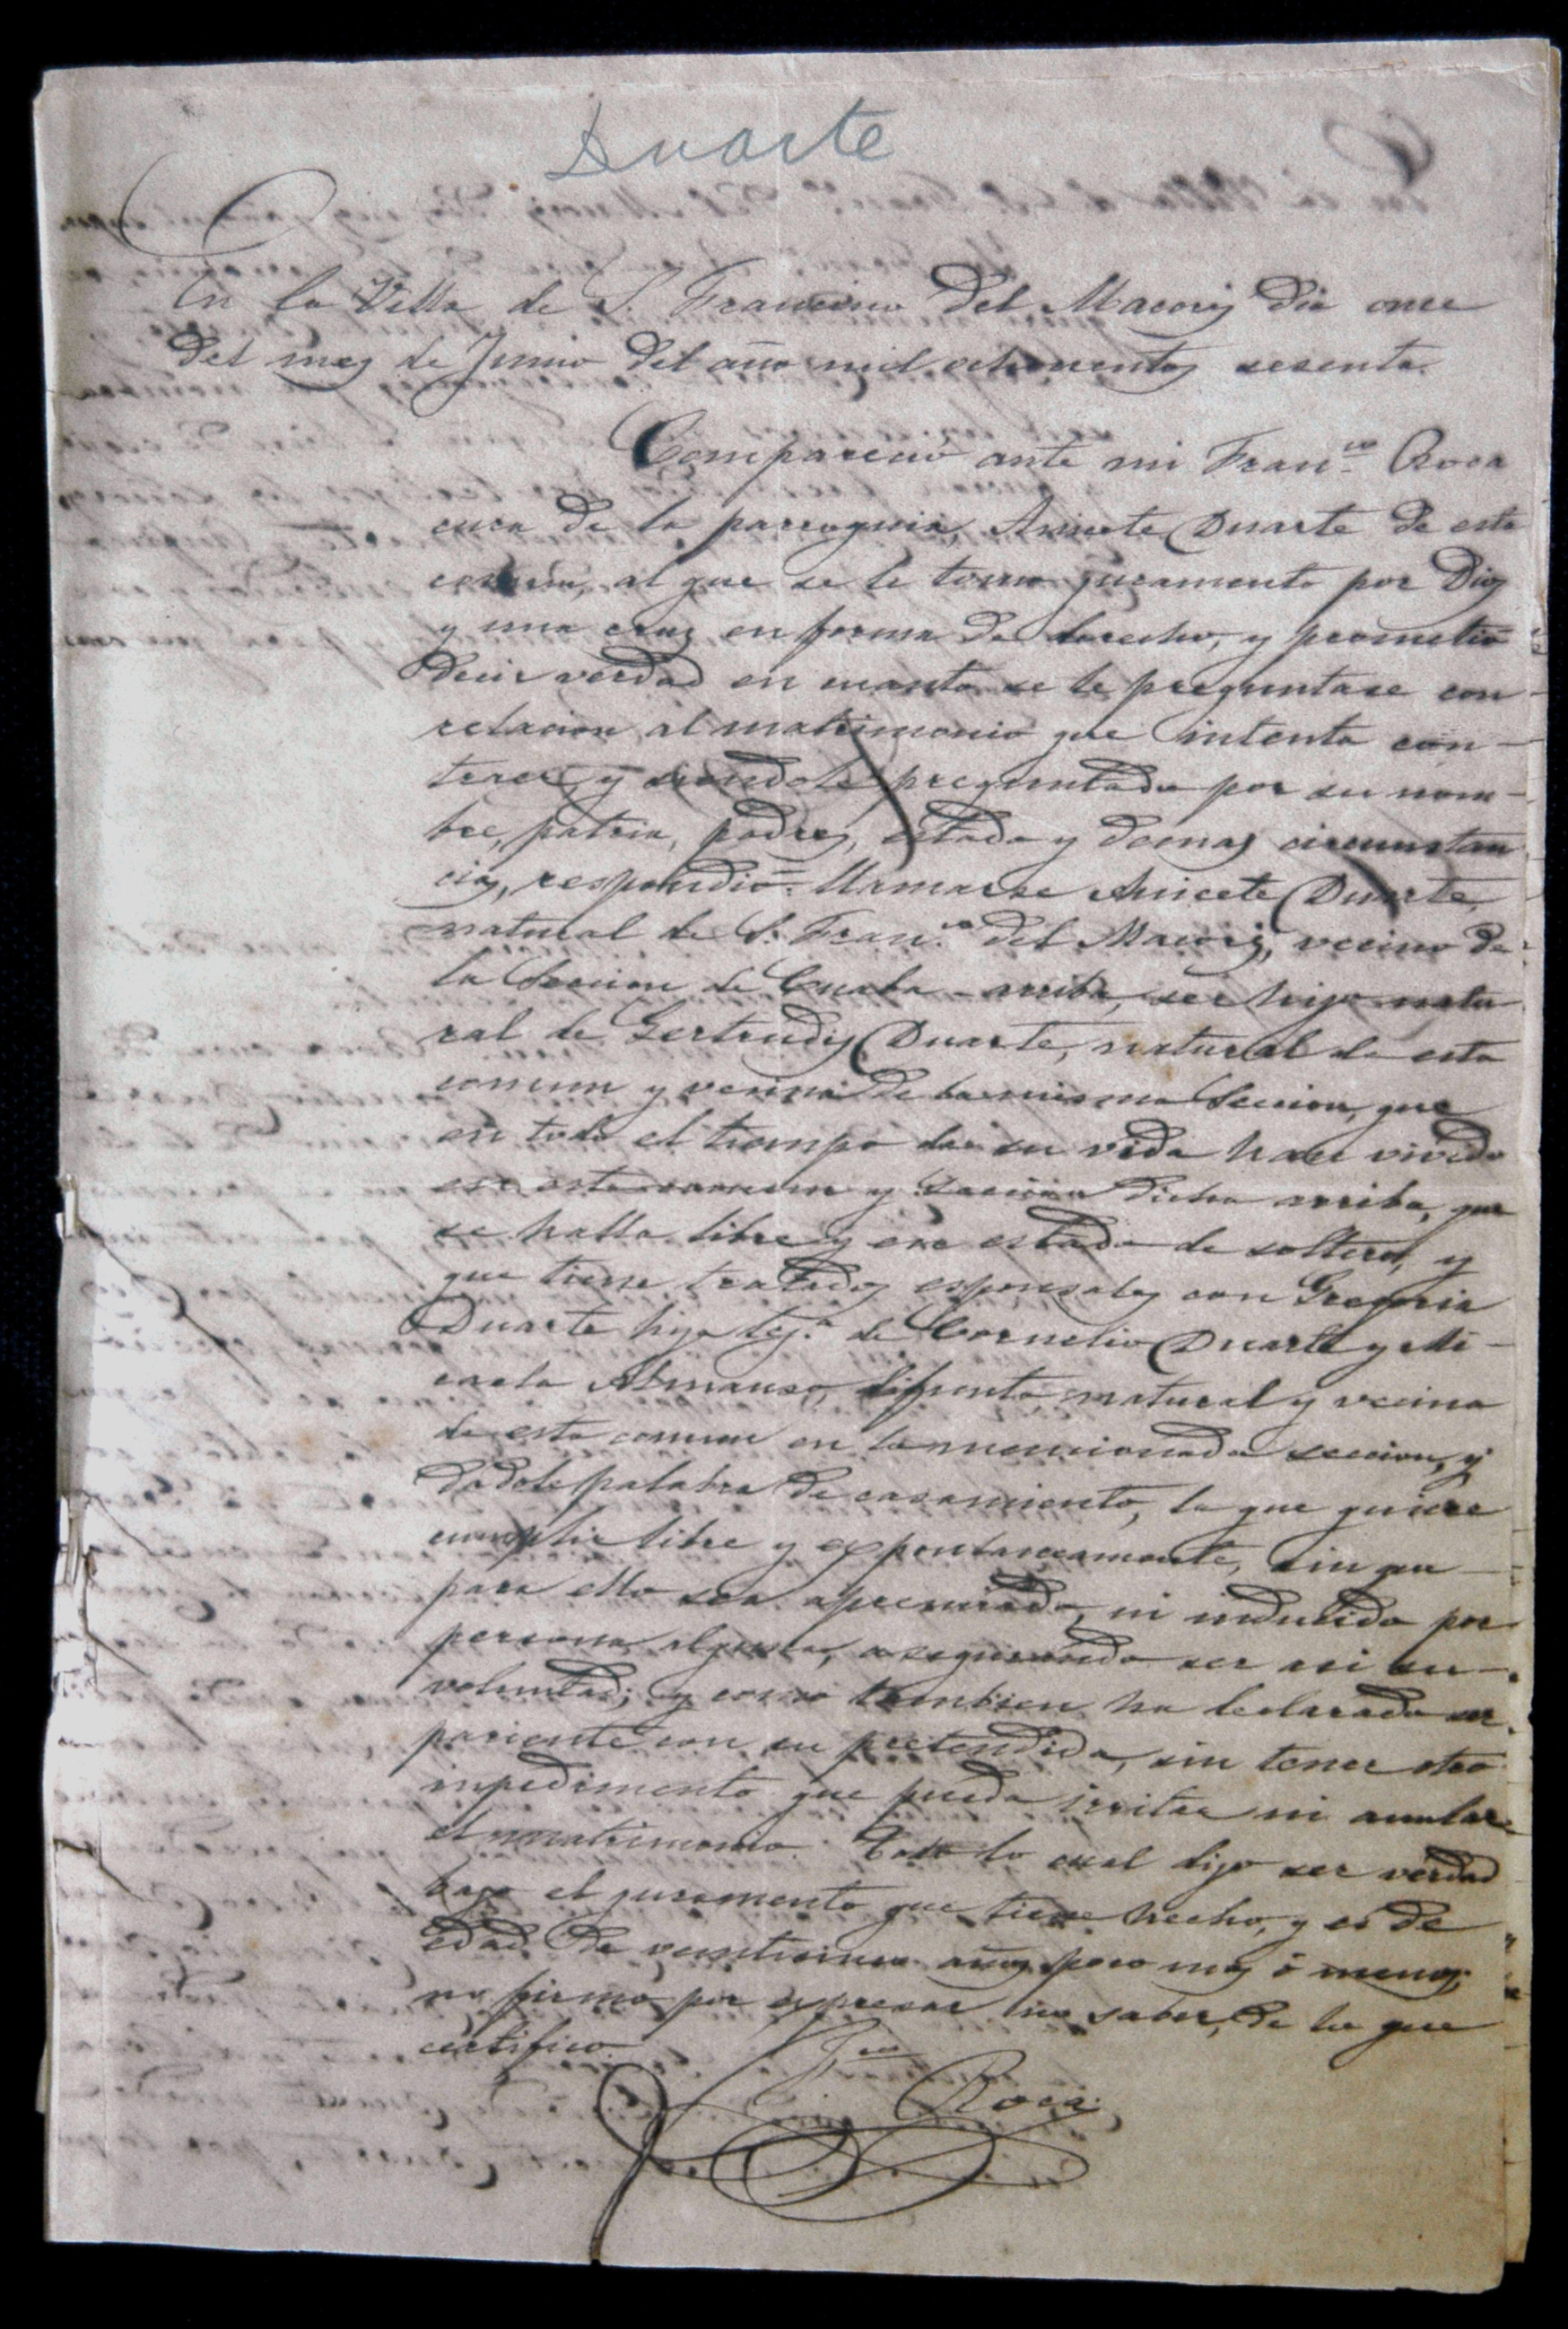 Duarte
En la Villa de S. Francisco del Macoris dia once
del mes de Junio del año mil ochocientos sesenta.
Compareció ante mi Fran.co Roca
cura de la parroquia, Anicete Duarte de esta
comun, al que se le tomo juramento por Dios
y una cruz en forma de derecho, y prometió
decir verdad en cuanto se le preguntase con
relacion al matrimonio que intenta con-
traer, y siendole preguntado por su nom-
bre, patria, padres, estado y demas circunstan
cias, respondió: llamarse Anicete Duarte,
natural de S. Fran.co del Macoris, vecino de
la Seccion de Cuaba-arriba, ser hijo natu
ral de Gertrudis Duarte, natural de esta
comun y vecina de la misma Seccion, que
en todo el tiempo de su vida ha vivido
en esta comun y Seccion dicha arriba, que
se halla libre y en estado de soltero, y
que tiene tratados esponsales con Gregoria
Duarte hija leg.a de Cornelio Duarte y Mi-
caela Almanso, difunta, natural y vecina
de esta comun en la mencionada seccion, y
dadole palabra de casamiento, la que quiere
cumplir libre y expontaneamente, sin que
para ello sea apremiado, ni inducido por
persona alguna, asegurando ser asi su
voluntad; y como tambien ha declarado ser
pariente con su pretendida, sin tener otro
impedimento que pueda irritar ni anular
el matrimonio. Todo lo cual dijo ser verdad
bajo el juramento que tiene hecho, y es de
edad de años poco mas ó menos;
no firmó por expresar no saber, de lo que
certifico.
Fran.co
Roca